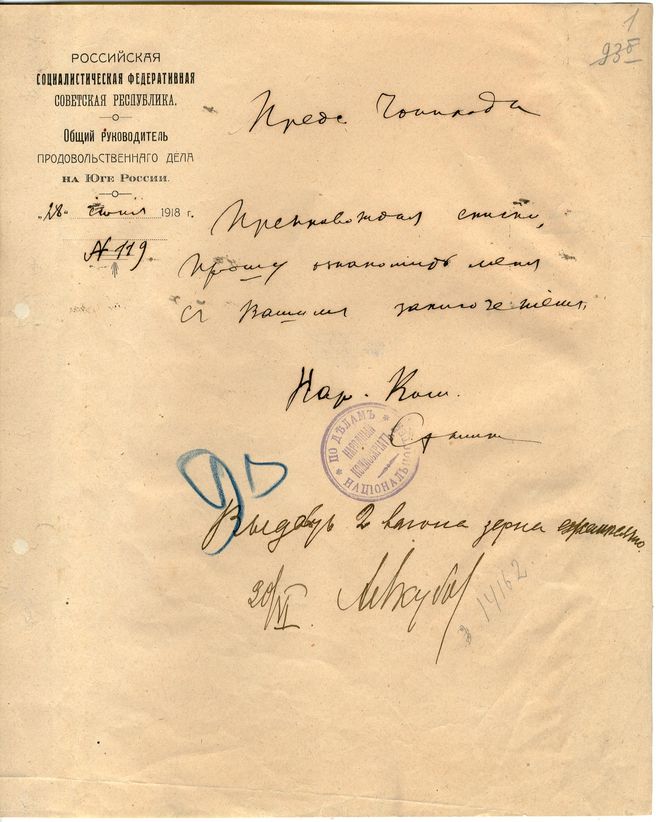 1
938
РОССИЙСКАЯ
СОЦИАЛИСТИЧЕСКАЯ ФЕДЕРАТИВНАЯ
СОВЕТСКАЯ РЕСПУБЛИКА.
Общий Руководитель
ПРОДОВОЛЬСТВЕННАГО ДЕЛА
на Юге России.
„28“ июня 1918 г.
№ 119
Пред.
Препровождая списки,
прошу ознакомить меня
с Вашим заключением,
Нар. Ком.
Сталин
ПО ДѢЛАМЪ НАЦІОНАЛЬНОСТЕЙ
НАРОДНЫЙ КОМИССАРІАТЪ
Выдать 2 вагона зерна
30/VI
14162